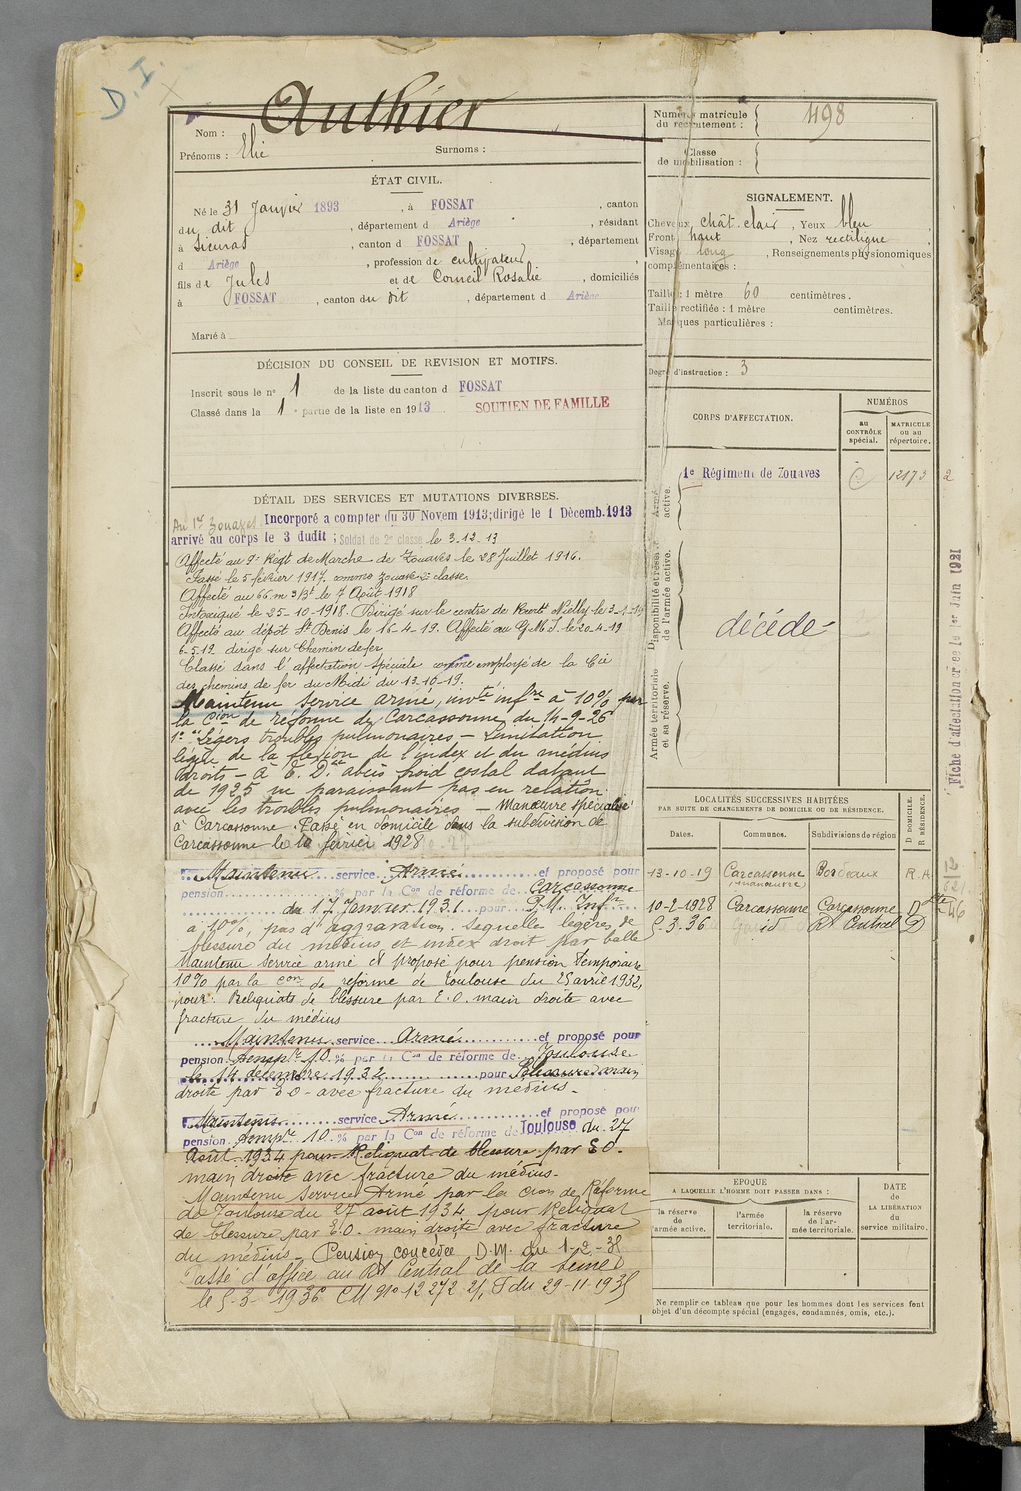 D.I.
Authier
Nom :
Prénoms : Elie Surnoms :
Numéro matricule
du recrutement : 498
Classe
de mobilisation :
ÉTAT CIVIL.
Né le 31 Janvier 1893, à FOSSAT, canton
du dit, département d Ariège, résidant
à Sieuras, canton d FOSSAT, département
d Ariège, profession de cultivateur,
fils de Jules et de Corneil Rosalie, domiciliés
à FOSSAT, canton du dit, département d Ariège
Marié à
SIGNALEMENT.
Cheveux chât. clair, Yeux bleu
Front haut, Nez rectiligne
Visage long, Renseignements physionomiques
complémentaires :
Taille : 1 mètre 60 centimètres.
Taille rectifiée : 1 mètre centimètres.
Marques particulières :
Degré d'instruction : 3
DÉCISION DU CONSEIL DE REVISION ET MOTIFS.
Inscrit sous le n° 1 de la liste du canton d FOSSAT
Classé dans la 1e partie de la liste en 1913 SOUTIEN DE FAMILLE
DÉTAIL DES SERVICES ET MUTATIONS DIVERSES.
Au 1er Zouaves Incorporé a compter du 30 Novem 1913; dirigé le 1 Décemb. 1913
arrivé au corps le 3 dudit; Soldat de 2e classe le 3.12.13
Affecté au 9e Régt de Marche de Zouaves le 28 Juillet 1916.
Passé le 5 février 1917. comme zouave 2e classe.
Affecté au 66 m 3/3t le 7 Août 1918
Intoxiqué le 25-10-1918. Dirigé sur le centre de Nielly le 3-1-19
Affecté au dépôt St Denis le 16-4-19. Affecté au G.M.J. le 20-4-19
6-5-19 dirigé sur Chemin de fer
Classé dans l'affectation spéciale comme employé de la Cie
des chemins de fer du Midi du 13-10-19.
Maintenu service armé, invté infre à 10% par
la Cion de réforme de Carcassonne du 14-9-26
1° Légers troubles pulmonaires - Limitation
légère de la flexion de l'index et du médius
droits - à E. D. abcès froid costal datant
de 1925 ne paraissant pas en relation
avec les troubles pulmonaires - Manœuvre spécialisé
à Carcassonne. Passé en domicile dans la subdivision de
Carcassonne le 10 février 1928
Maintenu service Armé et proposé pour
pension % par la Con de réforme de Carcassonne
du 17 Janvier 1931 pour P.M. Infr
à 10%, pas d'aggravation. Séquelles légères de
blessure du médius et index droit par balle
Maintenu service armé et proposé pour pension temporaire
10% par la Con de réforme de Toulouse du 25 avril 1932,
pour: Reliquats de blessure par E.O. main droite avec
fracture du médius
Maintenu service Armé et proposé pour
pension tempre 10 % par la Con de réforme de Toulouse
le 14 décembre 1932 pour Blessure main
droite par E O - avec fracture du médius -
Maintenu service Armé et proposé pour
pension tempre 10 % par la Con de réforme de Toulouse du 27
Août 1934 pour Reliquat de blessure par E O.
main droite avec fracture du médius -
Maintenu Service Armé par la Cion de Réforme
de Toulouse du 27 août 1934 pour Reliquat
de blessure par E.O. main droite avec fracture
du médius - Pension concédée D.M. du 1-2-35
Passé d'office au Rt Central de la Seine
le 5-3-1936 CM N° 12272 2/, T du 29-11-1935
CORPS D'AFFECTATION.
NUMÉROS
au
CONTRÔLE
spécial.
MATRICULE
ou au
répertoire.
Armée
active.
1e Régiment de Zouaves C 12173 2
Disponibilité et réserve
de l'armée active.
décédé
Armée territoriale
et sa réserve.
Fiche d'affectation créée le 1er Juin 1921
LOCALITÉS SUCCESSIVES HABITÉES
PAR SUITE DE CHANGEMENTS DE DOMICILE OU DE RÉSIDENCE.
D DOMICILE.
R RÉSIDENCE.
Dates. Communes. Subdivisions de région
13-10-19 Carcassonne Bordeaux R.A
(manœuvre)
10-2-1928 Carcassonne Carcassonne D
5-3-36 id Rt Central D
EPOQUE
A LAQUELLE L'HOMME DOIT PASSER DANS :
la réserve
de
l'armée active.
l'armée
territoriale.
la réserve
de l'ar-
mée territoriale.
DATE
de
LA LIBÉRATION
du
service militaire.
Ne remplir ce tableau que pour les hommes dont les services font
objet d'un décompte spécial (engagés, condamnés, omis, etc.).